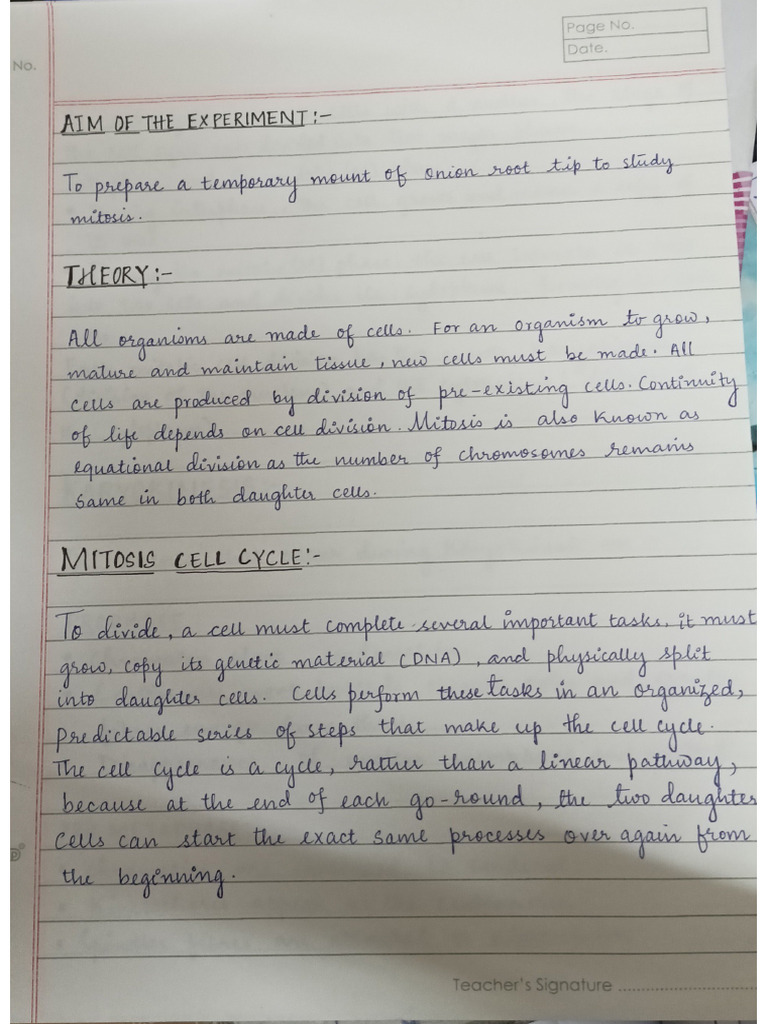 Page No.
Date.
No.
AIM OF THE EXPERIMENT:-
To prepare a temporary mount of onion root tip to study
mitosis.
THEORY:-
All organisms are made of cells. For an organism to grow,
mature and maintain tissue, new cells must be made. All
cells are produced by division of pre-existing cells. Continuity
of life depends on cell division. Mitosis is also known as
equational division as the number of chromosomes remains
same in both daughter cells.
MITOSIS CELL CYCLE:-
To divide, a cell must complete several important tasks, it must
grow, copy its genetic material (DNA), and physically split
into daughter cells. Cells perform these tasks in an organized,
predictable series of steps that make up the cell cycle.
The cell cycle is a cycle, rather than a linear pathway,
because at the end of each go-round, the two daughter
cells can start the exact same processes over again from
the beginning.
Teacher's Signature